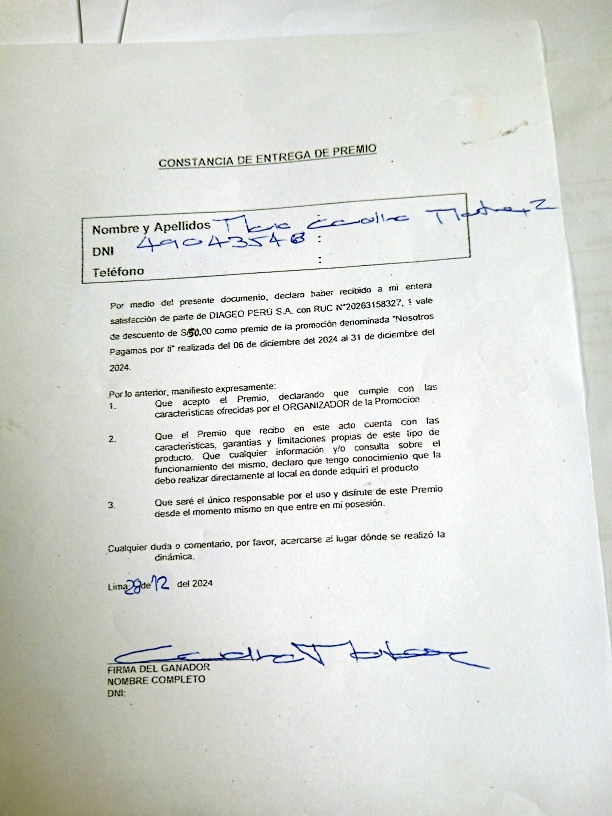 CONSTANCIA DE ENTREGA DE PREMIO
Nombre y Apellidos Maria Carolina Martinez
DNI 49043548 :
Teléfono :
Por medio del presente documento, declaro haber recibido a mi entera
satisfacción de parte de DIAGEO PERÚ S.A. con RUC N°20263158327, 1 vale
de descuento de S/50.00 como premio de la promoción denominada "Nosotros
Pagamos por ti" realizada del 06 de diciembre del 2024 al 31 de diciembre del
2024.
Por lo anterior, manifiesto expresamente:
1. Que acepto el Premio, declarando que cumple con las
características ofrecidas por el ORGANIZADOR de la Promoción
2. Que el Premio que recibo en este acto cuenta con las
características, garantías y limitaciones propias de este tipo de
producto. Que cualquier información y/o consulta sobre el
funcionamiento del mismo, declaro que tengo conocimiento que la
debo realizar directamente al local en donde adquirí el producto
3. Que seré el único responsable por el uso y disfrute de este Premio
desde el momento mismo en que entre en mi posesión.
Cualquier duda o comentario, por favor, acercarse al lugar dónde se realizó la
dinámica.
Lima 28 de 12 del 2024
FIRMA DEL GANADOR
NOMBRE COMPLETO
DNI: